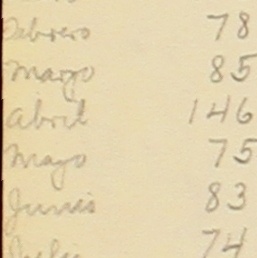 Febrero 78
Marzo 85
Abril 146
Mayo 75
Junio 83
Julio 74